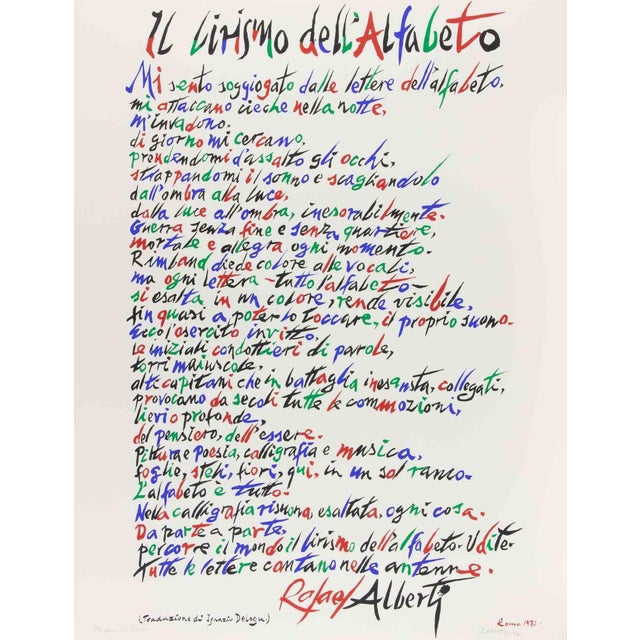 Il lirismo dell'Alfabeto
Mi sento soggiogato dalle lettere dell'alfabeto,
mi attaccano cieche nella notte,
m'invadono.
di giorno mi cercano,
prendendomi d'assalto gli occhi,
strappandomi il sonno e scagliandolo
dall'ombra alla luce,
dalla luce all'ombra, inesorabilmente.
Guerra senza fine e senza quartiere,
mortale e allegra, ogni momento.
Rimbaud diede colore alle vocali,
ma ogni lettera - tutto l'alfabeto -
si esalta in un colore, rende visibile,
fin quasi a poterlo toccare, il proprio suono.
Ecco l'esercito invitto,
le iniziali condottieri di parole,
torri maiuscole,
alti capitani che in battaglia inesausta, collegati,
provocano da secoli tutte le commozioni,
lievi o profonde,
del pensiero, dell'essere.
Pittura e poesia, calligrafia e musica,
foglie, steli, fiori, qui, in un sol ramo.
L'alfabeto è tutto.
Nella calligrafia risuona, esaltata, ogni cosa.
Da parte a parte,
percorre il mondo il lirismo dell'alfabeto. Udite.
Tutte le lettere cantano nelle antenne.
Rafael Alberti
(Traduzione di Ignazio Delogu)
Roma 1972.